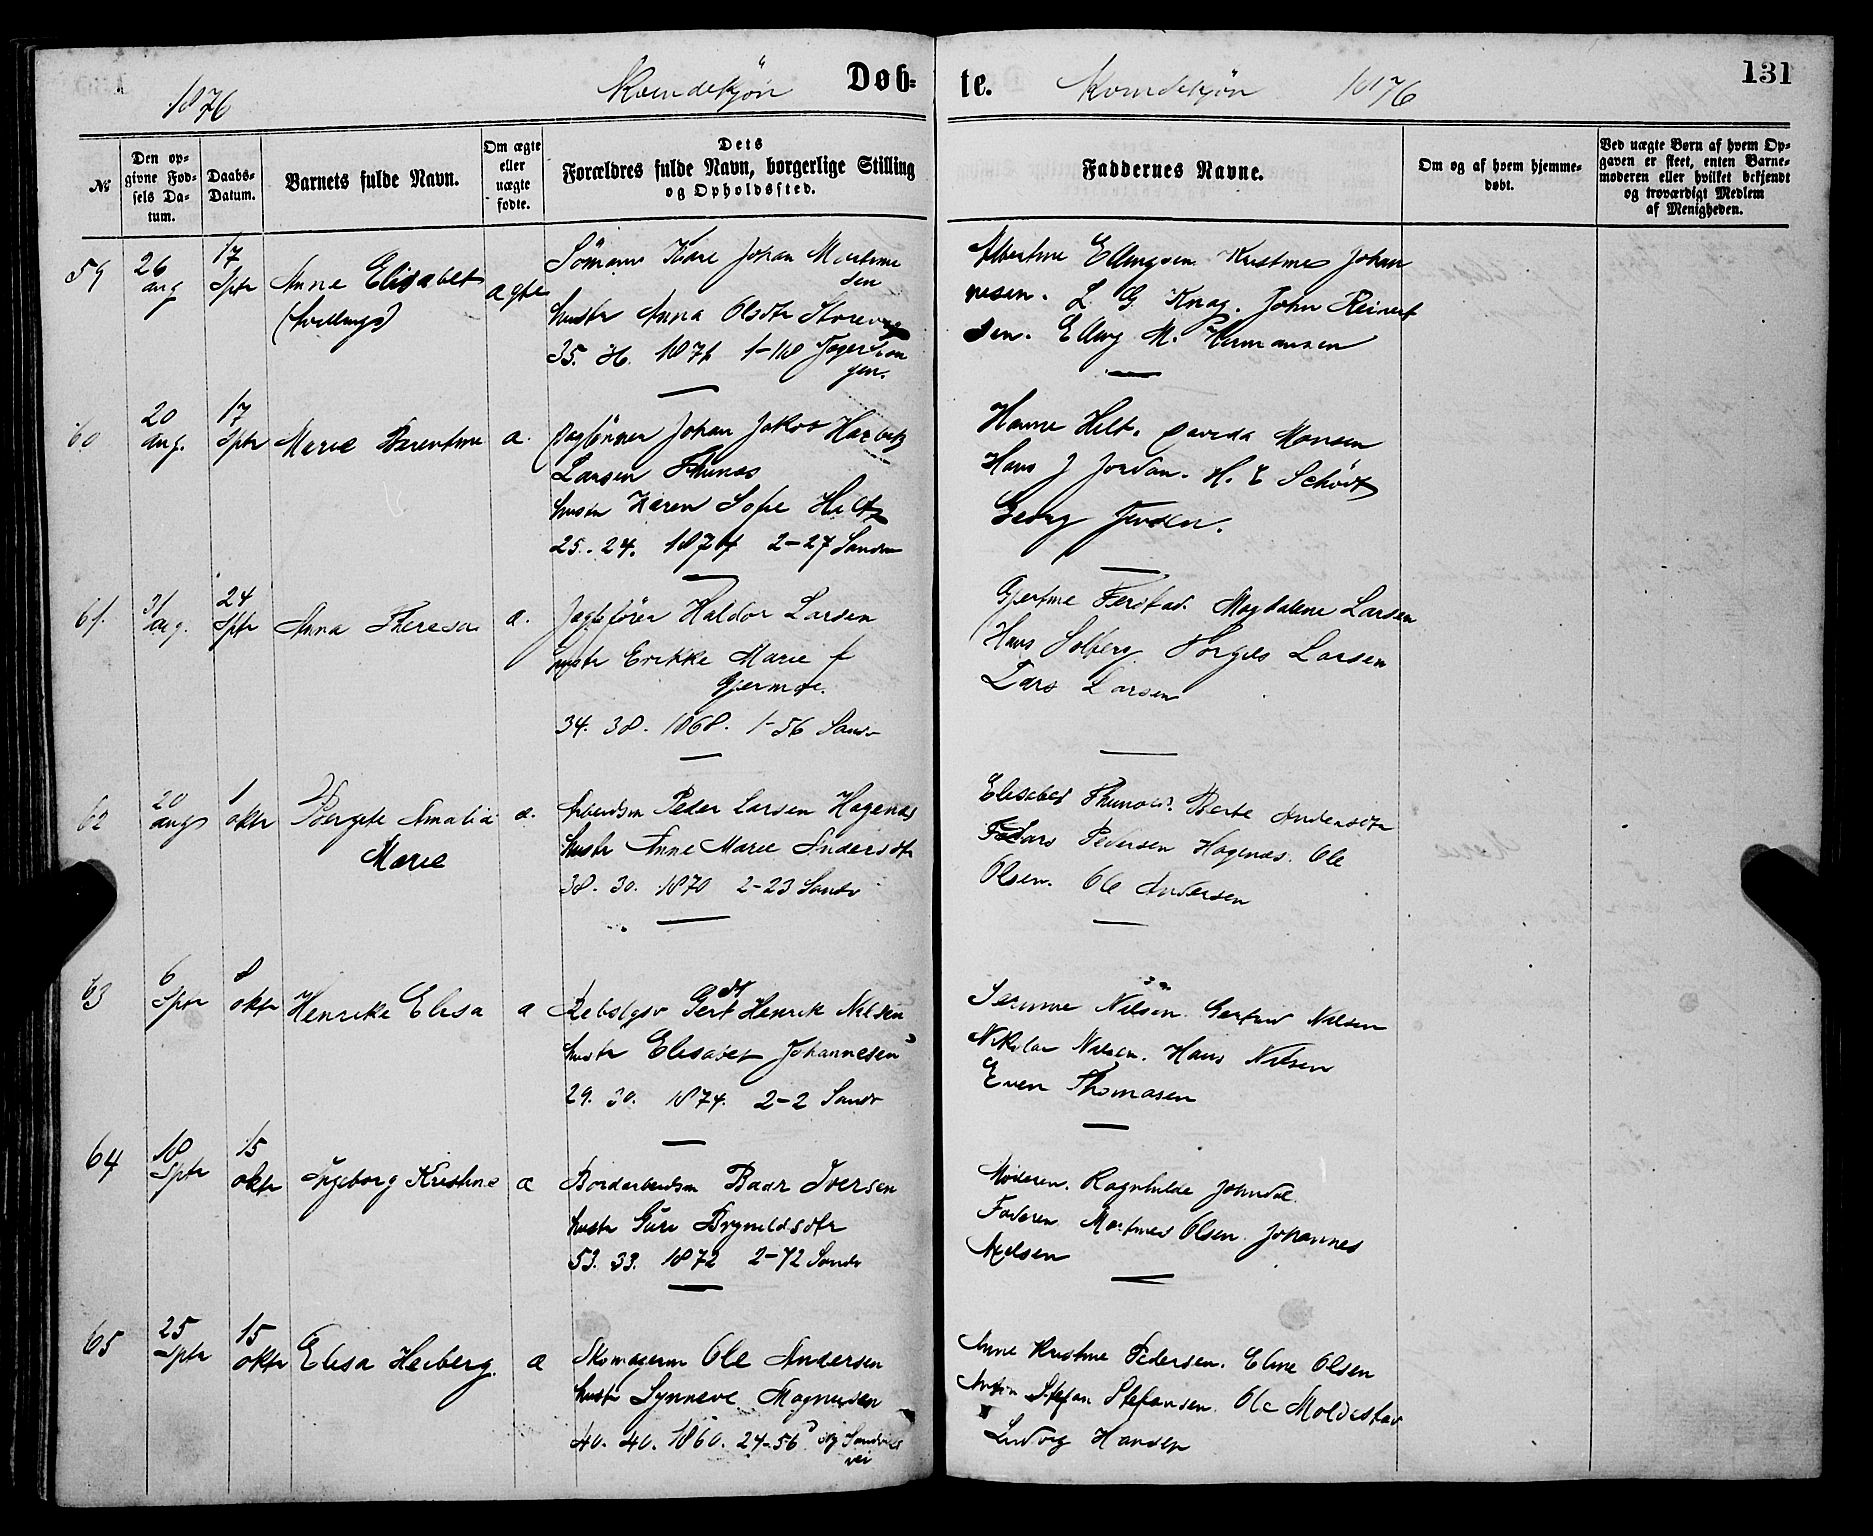 1876 Kvindekjön Døb=
te. Kvindekjön 1876 131
№
Den op=
givne Fød=
sels Da=
tum.
Daabs=
Datum.
Barnets fulde Navn.
Om ægte
eller
uægte
fødte.
Dets
Forældres fulde Navn, borgerlige Stilling
og Opholdssted.
Faddernes Navne.
Om og af hvem hjemme=
døbt.
Ved uægte Børn af hvem Op=
gaven er skeet, enten Barne=
moderen eller hvilket bekjendt
og troværdigt Medlem
af Menigheden.
59 26 aug 17 Sptr Anne Elisabet ægte
(tvillings)
Sömann Kare Johan Martine
sen
hustr Anna Olsdtr
35. 1-118
Albertine Ellingsen Kristine Johan
nesen. L. G. Knag. John Reinert
sen. Elling M. Hermansen
60 20 aug. 17 Sptr Marie Berentine a.
Johan Jakob
Larsen Thunes
hustr Karen Sofie Helt
25. 24. 1874 2-27 Sandv
Hanne Helt. Monsen
Hans J Jordan. H. E Schödt
Georg Jensen.
61. 31 aug. 24 Sptr Anna Theresa a.
Jagtefører Haldor Larsen
hustr Erikke Marie f
Gjermoe.
34. 38. 1868. 1-56 Sandv
Gjertine Ferstad. Magdalene Larsen
Hans Solberg. Torgils Larsen
Lars Larsen
62 20 aug 1 oktr Bergete Amalia a.
Marie
Arbeidsm Peder Larsen Hagenæs
hustr Anne Marie Andersdtr
38. 30. 1870 2-23 Sandv
Elisabet Thunold. Berte Andersdtr
Lars Pedersen Hagenæs. Ole
Olsen. Ole Andersen
63 6 Sptr 8 oktr Henrike Elisa a
Rebslgsv Gert Henrik Nilsen
hustr Elisabet Johannesen
29. 30. 1874. 2-2 Sandv
Serine Nilsen. Gertrud Nilsen
Nikolai Nilsen. Hans Nilsen
Even Thomasen
64 18 Sptr 15 oktr Ingeborg Kristine a
Bordarbeidsm Baar Iversen
hustr Guri Brynildsdtr
53. 33. 1872 2-72 Sandv
Moderen. Ragnhilde
Faderen Martines Olsen. Johannes
Nielsen
65 25 Sptr 15 oktr Elisa Heiberg. a
Skomagerm Ole Andersen
hustr Synneve Magnusen
40. 40. 1860. 24-56
Anne Kristine Pedersen. Eline Olsen
Anton Stefan Stefansen. Ole Moldestad
Ludvig Hansen